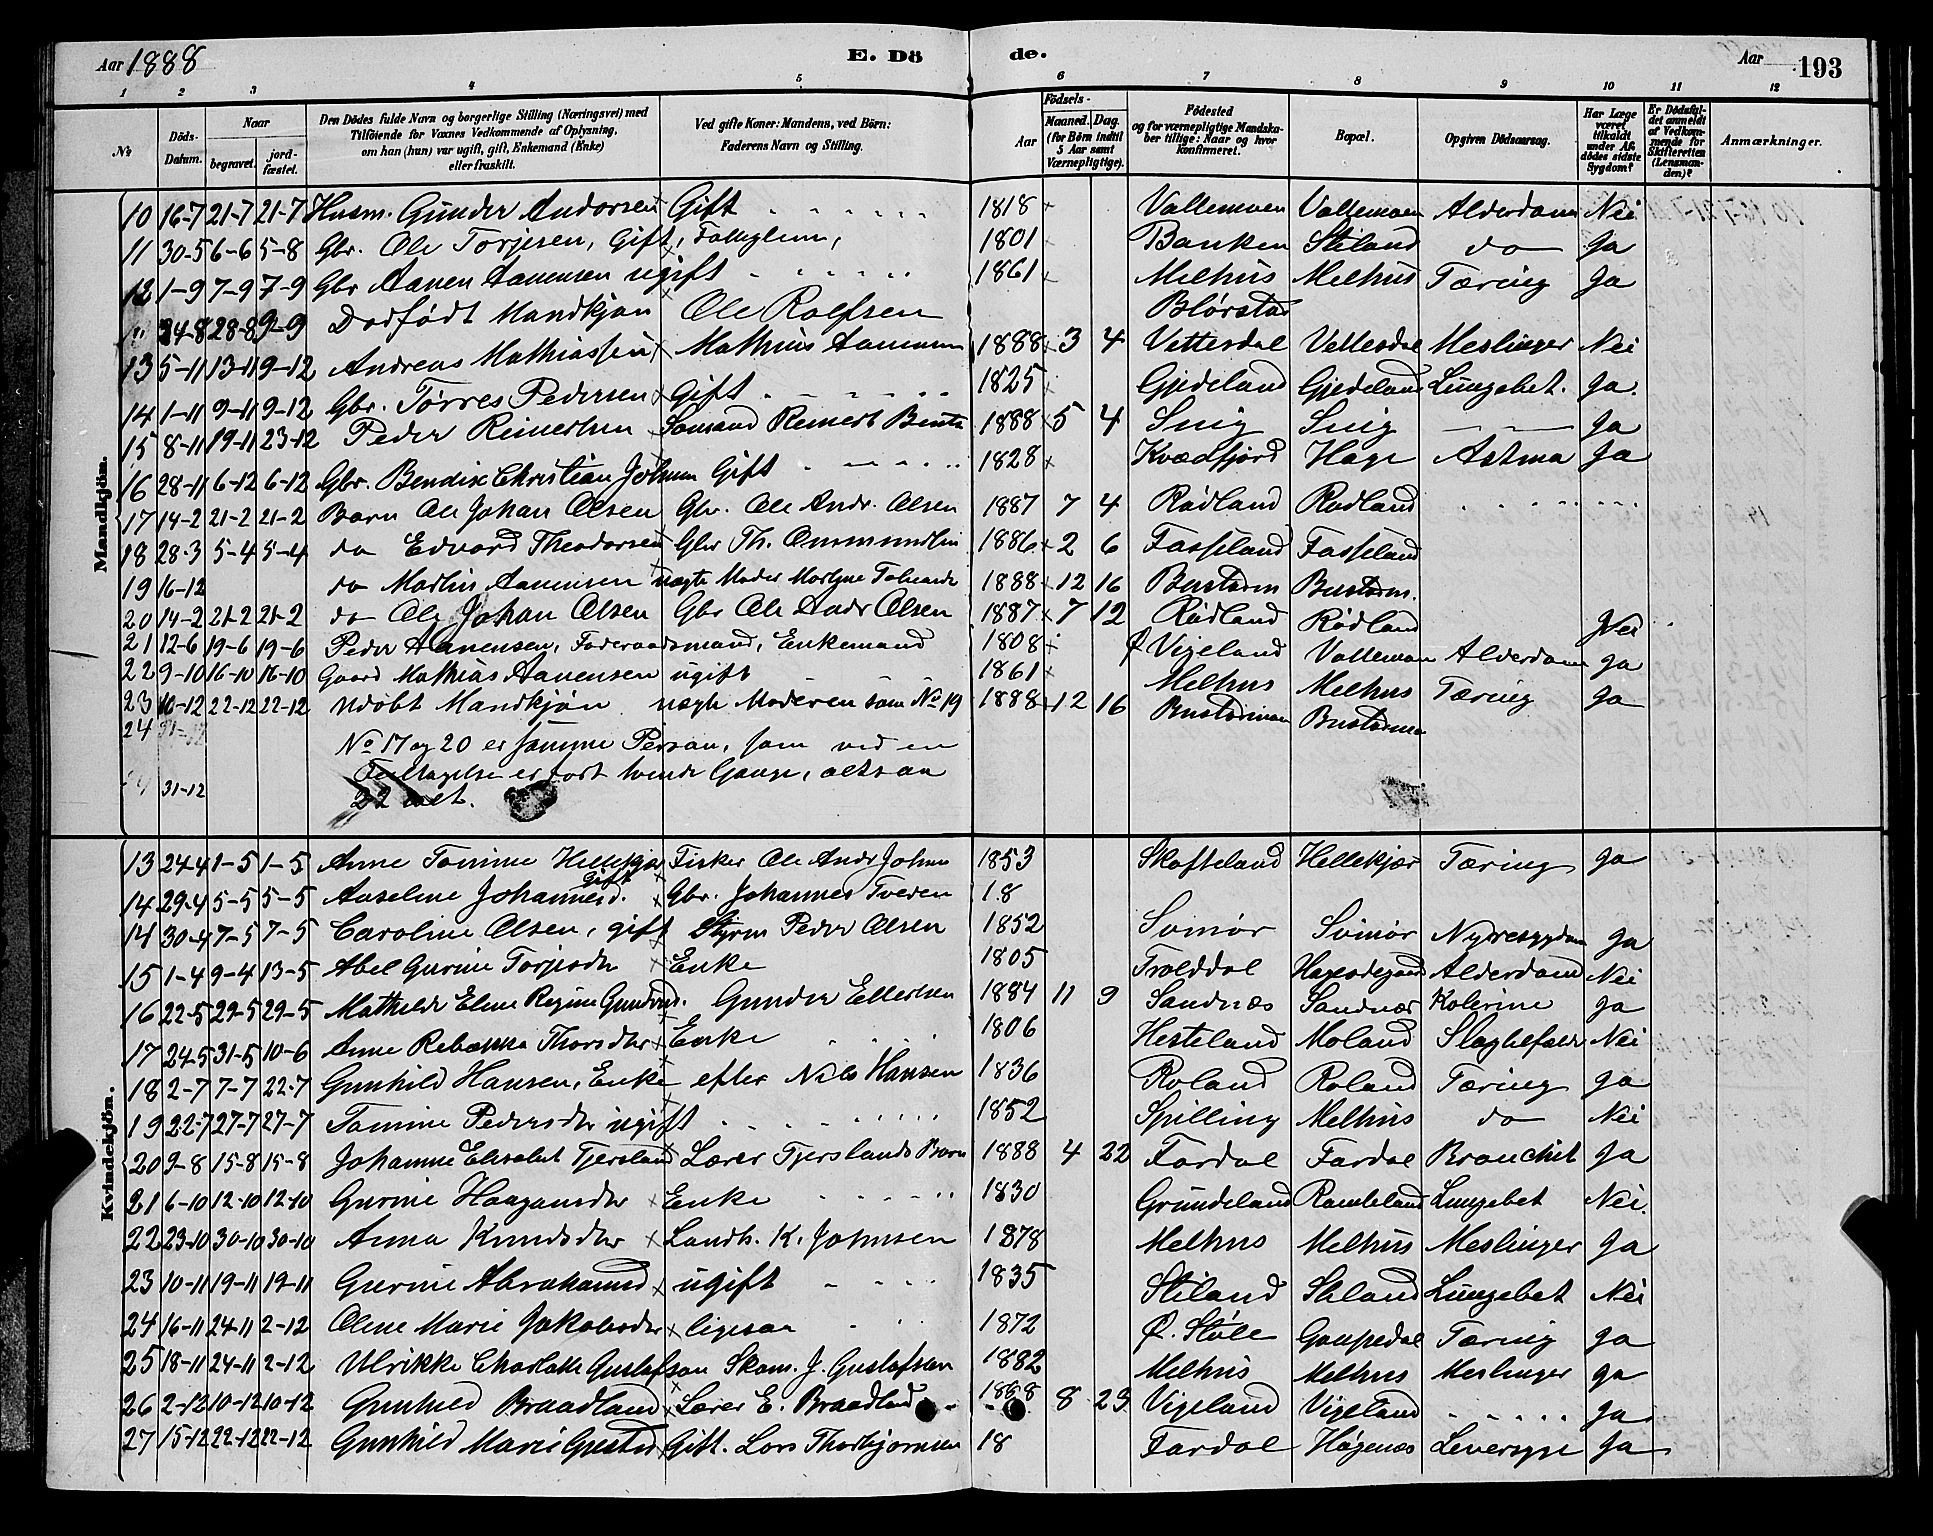 Aar 1888 E. Dö de. Aar 193
1 2 3 4 5 6 7 8 9 10 11 12
No Döds-Datum. Naar begravet. jordfæstet. Den Dödes fulde Navn og borgerlige Stilling (Næringsvei) med Tilföiende for Voxnes Vedkommende af Oplysning, om han (hun) var ugift, gift, Enkemand (Enke) eller fraskilt. Ved gifte Koner: Mandens, ved Börn: Faderens Navn og Stilling. Födsels- Aar Maaned. Dag. (for Börn indtil 5 Aar samt Værnepligtige). Födested og for værnepligtige Mandskaber tillige: Naar og hvor konfirmeret. Bopæl. Opgiven Dödsaarsag. Har Læge været tilkaldt under Afdödes sidste Sygdom? Er Dödsfaldet anmeldt af Vedkommende for Skifteretten (Lensmanden)? Anmærkninger.
Mandkjön.
10 16-7 21-7 21-7 Husm. Gunder Andorsen Gift 1818 Vallemoen Vallemoen Alderdom Nei
11 30-5 6-6 5-8 Gbr. Ole Torjesen, Gift, 1801 Banken Stiland do Ja
12 1-9 7-9 7-9 Gbr Aanen Aanensen ugift 1861 Melhus Melhus Tæring Ja
24-8 28-8 9-9 Dødfødt Mandkjøn Ole Rolfsen
13 5-11 13-11 9-12 Andreas Mathiassen Mathias Aanensen 1888 3 4 Vetterdal Vetterdal Meslinger Nei
14 1-11 9-11 9-12 Gbr. Tørres Pedersen Gift 1825 Gjedeland Gjedeland Lungebet. Ja.
15 8-11 19-11 23-12 Peder Reinertsen 1888 5 4 Snig Snig Ja
16 28-11 6-12 6-12 Gbr. Bendix Christian Johnsen Gift 1828 Kvædfjord Hage Astma Ja
17 14-2 21-2 21-2 Barn Ole Johan Olsen Gbr. Ole Andr. Olsen 1887 7 4 Rødland Rødland
18 28-3 5-4 5-4 do Edvard Theodorsen Gbr Th. Ommundsen 1886 2 6 Fasseland Fasseland
19 16-12 do Martin Aanensen uægte Moder 1888 12 16
20 14-2 21-2 21-2 do Ole Johan Olsen Gbr Ole Andr Olsen 1887 7 12 Rødland Rødland
21 12-6 19-6 19-6 Peder Aanensen, Føderaadsmand, Enkemand 1808 Ø Vigeland Vallemoen Alderdom Nei
22 9-10 16-10 16-10 Gaard Mathias Aanensen ugift 1861 Melhus Melhus Tæring Ja
23 16-12 22-12 22-12 udøbt Mandkjøn uægte Moderen som No 19 1888 12 16 Ja
24 31-12
No 17 og 20 er samme Person, som ved en
Feiltagelse er ført tvende Gange, altsaa
31-12 22 ialt.
Kvindekjön.
13 24-4 1-5 1-5 Anne Tomine Hellekjær Fisker Ole Andr Johnsen 1853 Skofteland Hellekjær Tæring Ja
14 29-4 5-5 5-5 Anseline Johannesd. gift Gbr. Johannes Tveren 18
14 30-4 7-5 7-5 Caroline Olsen, gift Styrm Peder Olsen 1852 Svinør Svinør Nyresygdom Ja
15 1-4 9-4 13-5 Abel Gurine Torjesdtr Enke 1805 Trolddal Alderdom Nei
16 22-5 29-5 29-5 Mathilde Elene Regine Gundersd. Gunder Ellertsen 1884 11 9 Sandnæs Sandnæs Kolerine Ja
17 24-5 31-5 10-6 Anne Rebækka Thorsdtr Enke 1806 Hesteland Moland Slagtilfælde Nei
18 2-7 7-7 22-7 Gunhild Hansen, Enke efter Nils Hansen 1836 Roland Roland Tæring Ja
19 22-7 27-7 27-7 Tomine Pedersdtr ugift 1852 Spilling Melhus do Nei
20 9-8 15-8 15-8 Johanne Elisabet Tjersland Lærer Tjerslands Barn 1888 4 22 Fardal Fardal Bronchit Ja
21 6-10 12-10 12-10 Gurine Haagensdtr Enke 1830 Grundeland Rambeland Lungebet Nei.
22 23-10 30-10 30-10 Anna Knudsdtr Landh. K. Johnsen 1878 Melhus Melhus Meslinger Ja
23 10-11 19-11 19-11 Gurine Abrahamsd ugift 1835 Stiland Stiland Lungebet Nei
24 16-11 24-11 2-12 Olene Marie Jakobsdtr ligesaa 1872 Ø. Støle Gaupedal Tæring Ja
25 18-11 24-11 2-12 Ulrikke Charlotte Gustafson Skom. J. Gustafson 1882 Melhus Melhus Meslinger Ja
26 2-12 10-12 10-12 Gunhild Braadland Lærer E. Braadland 1888 8 23 Vigeland Vigeland Ja
27 15-12 22-12 22-12 Gunhild Marie Gjestad Gift. Lars Thorbjørnsen 18 Fardal Høgenæs Leversyge Ja